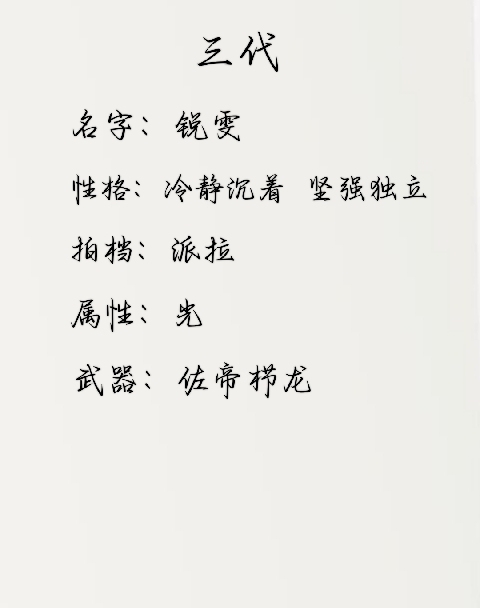 三代
名字：锐雯
性格：冷静沉着 坚强独立
拍档：派拉
属性：光
武器：佐帝栉龙